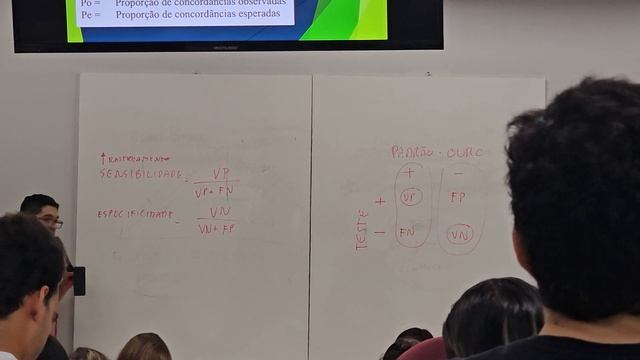 Po = Proporção de concordâncias observadas
Pe = Proporção de concordâncias esperadas
↑ RASTREAMENTO
SENSIBILIDADE = VP
VP + FN
ESPECIFICIDADE = VN
VN + FP
PADRÃO - OURO
+ -
TESTE
+ VP FP
- FN VN